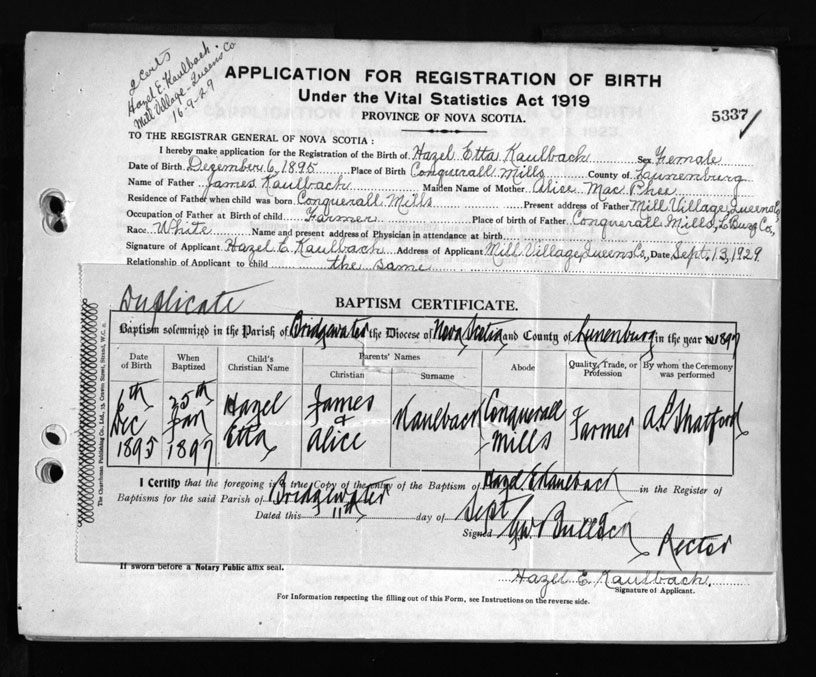 2 Certs
Hazel E. Kaulbach.
Mill Village - Queens Co
16-9-29
APPLICATION FOR REGISTRATION OF BIRTH
Under the Vital Statistics Act 1919
PROVINCE OF NOVA SCOTIA.
5337
TO THE REGISTRAR GENERAL OF NOVA SCOTIA:
I hereby make application for the Registration of the Birth of Hazel Etta Kaulbach Sex Female
Date of Birth December 6, 1895 Place of Birth Conquerall Mills County of Lunenburg
Name of Father James Kaulbach Maiden Name of Mother Alice Mac Phee
Residence of Father when child was born Conquerall Mills Present address of Father Mill Village, Queens Co,
Occupation of Father at Birth of child Farmer Place of birth of Father Conquerall Mills, L'Burg Co,
Race White Name and present address of Physician in attendance at birth
Signature of Applicant Hazel E. Kaulbach Address of Applicant Mill Village, Queens Co, Date Sept. 13, 1929
Relationship of Applicant to child the same
Duplicate BAPTISM CERTIFICATE.
Baptism solemnized in the Parish of Bridgewater the Diocese of Nova Scotia and County of Lunenburg in the year 1897
Date of Birth When Baptized Child's Christian Name Parents' Names Christian Surname Abode Quality, Trade, or Profession By whom the Ceremony was performed
6th Dec 1895 25th Jan 1897 Hazel Etta James & Alice Kaulback Conquerall Mills Farmer A.P. Shatford
I Certify that the foregoing is true Copy of the entry of the Baptism of Hazel E Kaulbach in the Register of
Baptisms for the said Parish of Bridgewater
Dated this 11th day of Sept
Signed GW Bullock Rector
The Churchman Publishing Co., Ltd.,
If sworn before a Notary Public affix seal.
Hazel E. Kaulbach.
Signature of Applicant.
For Information respecting the filling out of this Form, see Instructions on the reverse side.